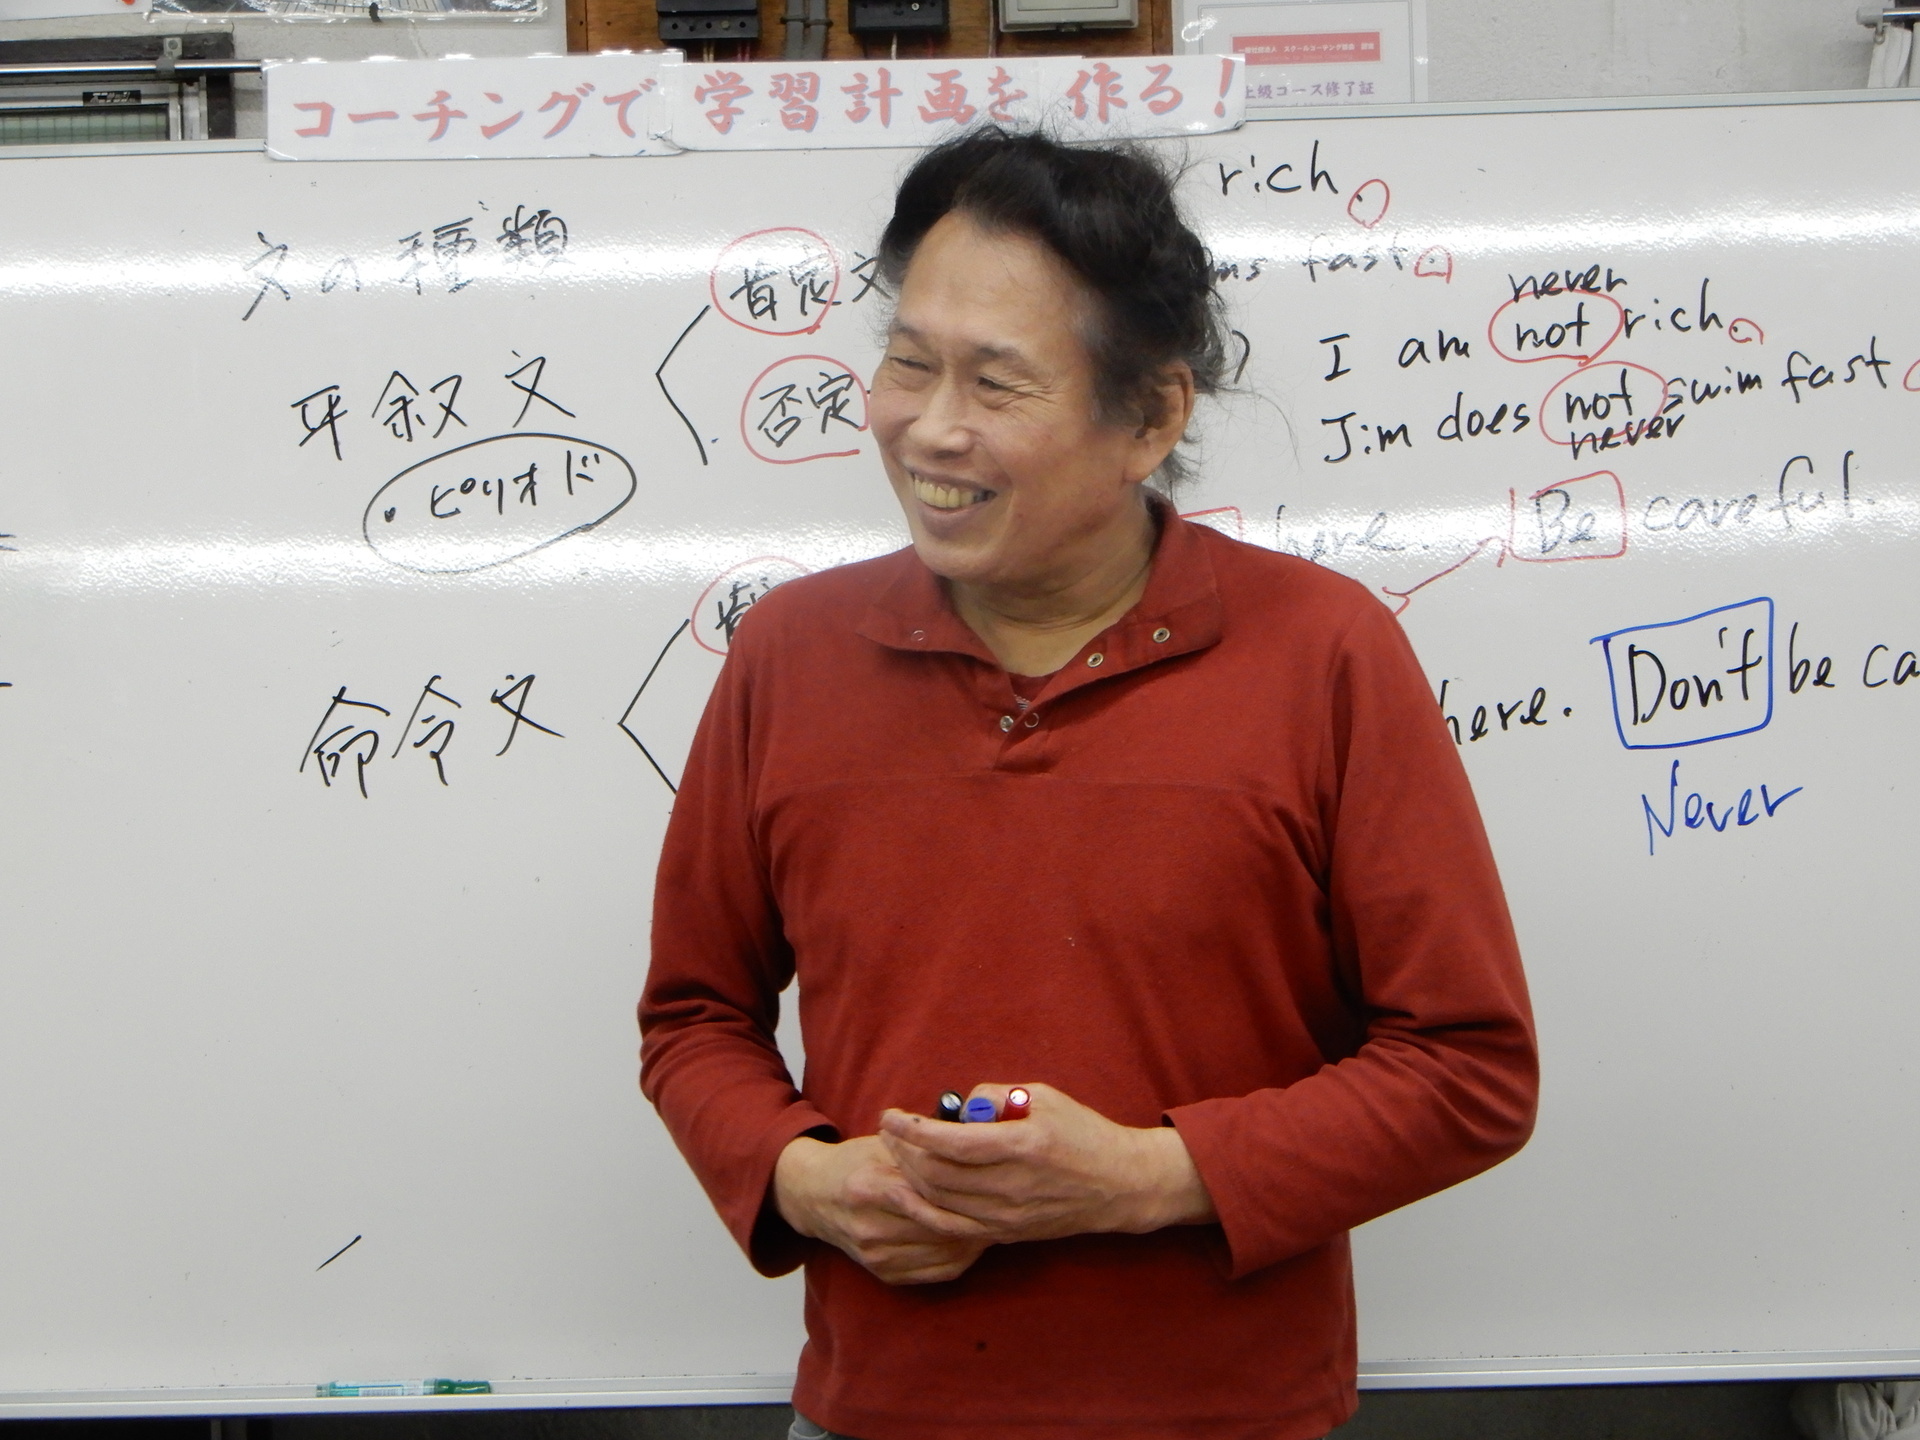 コーチングで学習計画を作る!
上級コース修了証
文の種類
平叙文
・ピリオド
肯定文
否定
rich.
fast.
never
I am not rich.
Jim does not swim fast
never
here.
Be careful.
命令文
here.
Don't be
Never